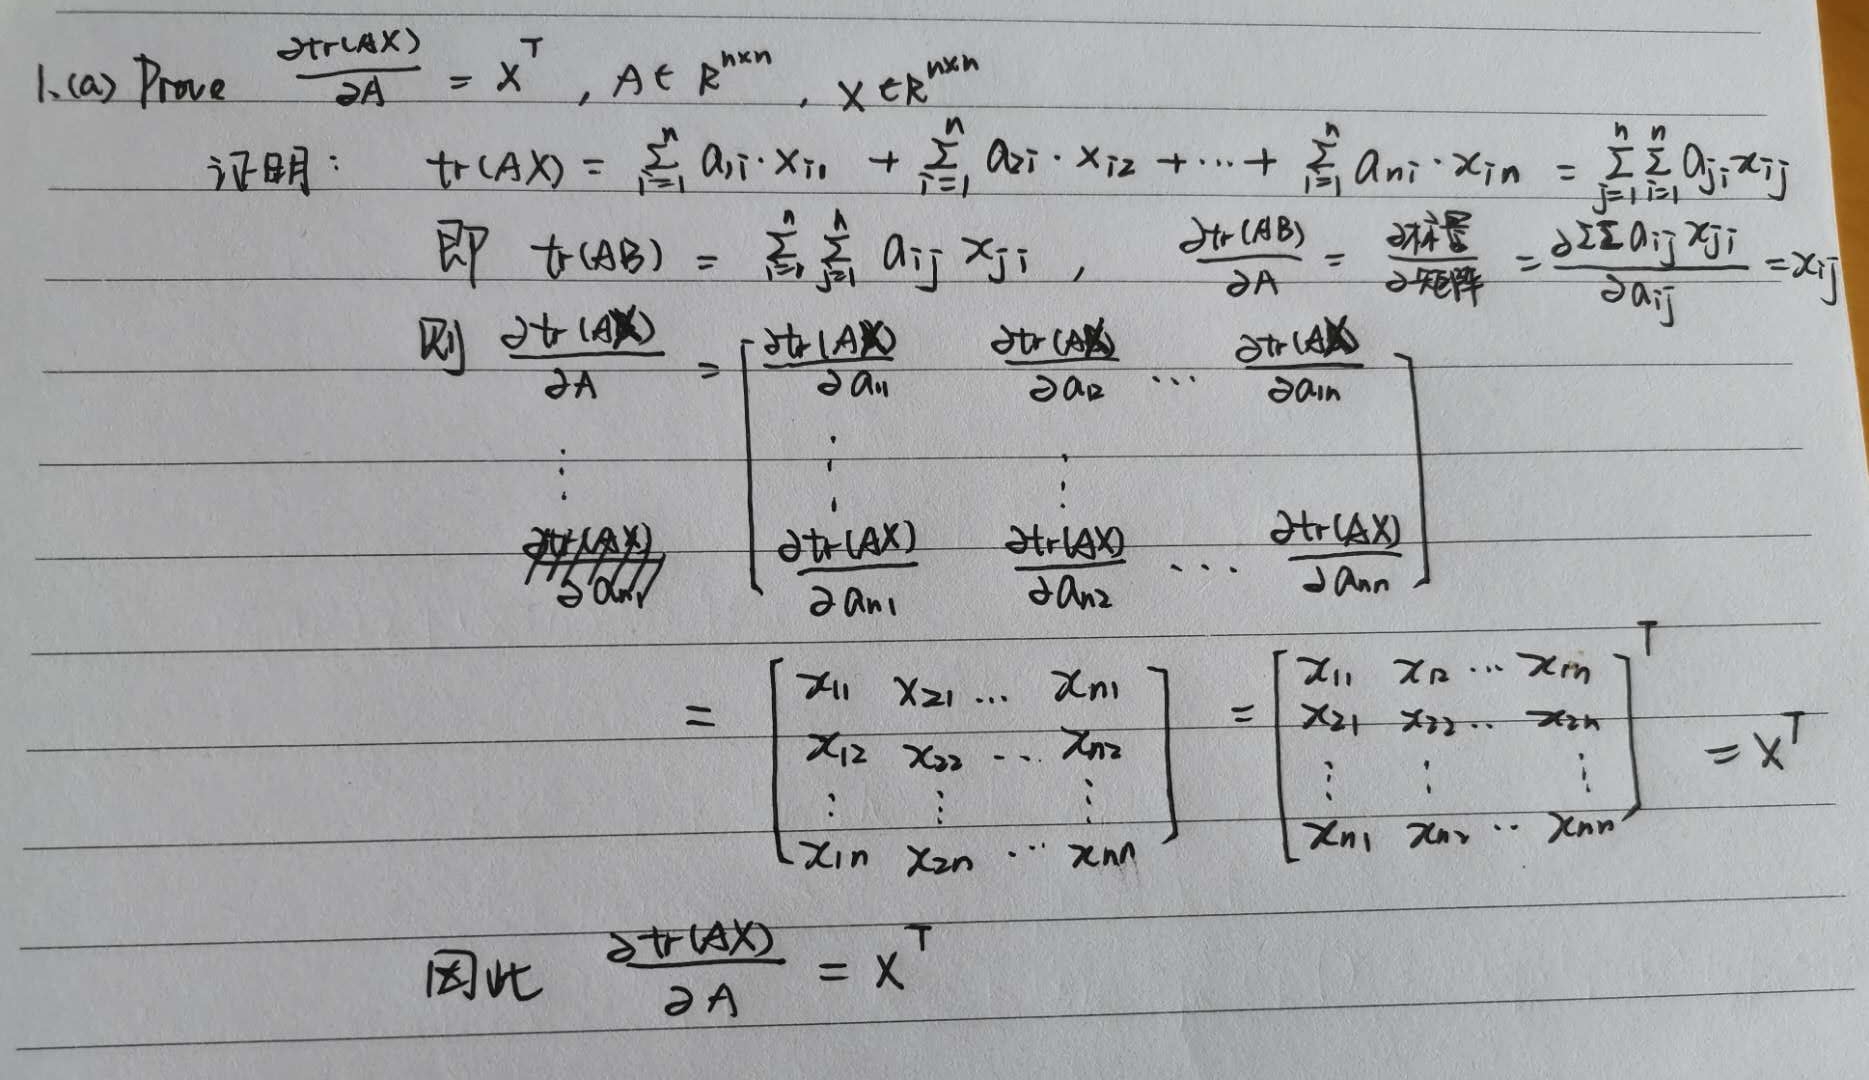 1.(a) Prove ∂tr(AX)/∂A = X^T , A∈R^{n×n} , X∈R^{n×n}
证明: tr(AX) = ∑_{i=1}^{n} a_{1i}·x_{i1} + ∑_{i=1}^{n} a_{2i}·x_{i2} + ⋯ + ∑_{i=1}^{n} a_{ni}·x_{in} = ∑_{j=1}^{n} ∑_{i=1}^{n} a_{ji}x_{ij}
即 tr(AB) = ∑_{i=1}^{n} ∑_{j=1}^{n} a_{ij} x_{ji} , ∂tr(AB)/∂A = ∂标量/∂矩阵 = ∂∑∑a_{ij}x_{ji}/∂a_{ij} = x_{ij}
则 ∂tr(AX)/∂A = [ ∂tr(AX)/∂a_{11} ∂tr(AX)/∂a_{12} ⋯ ∂tr(AX)/∂a_{1n}
⋮ ⋮ ⋮
∂tr(AX)/∂a_{n1} ∂tr(AX)/∂a_{n2} ⋯ ∂tr(AX)/∂a_{nn} ]
= [ x_{11} x_{21} ⋯ x_{n1} = [ x_{11} x_{12} ⋯ x_{1n} ]^T
x_{12} x_{22} ⋯ x_{n2} x_{21} x_{22} ⋯ x_{2n} = X^T
⋮ ⋮ ⋮ ⋮ ⋮ ⋮
x_{1n} x_{2n} ⋯ x_{nn} ] x_{n1} x_{n2} ⋯ x_{nn}
因此 ∂tr(AX)/∂A = X^T